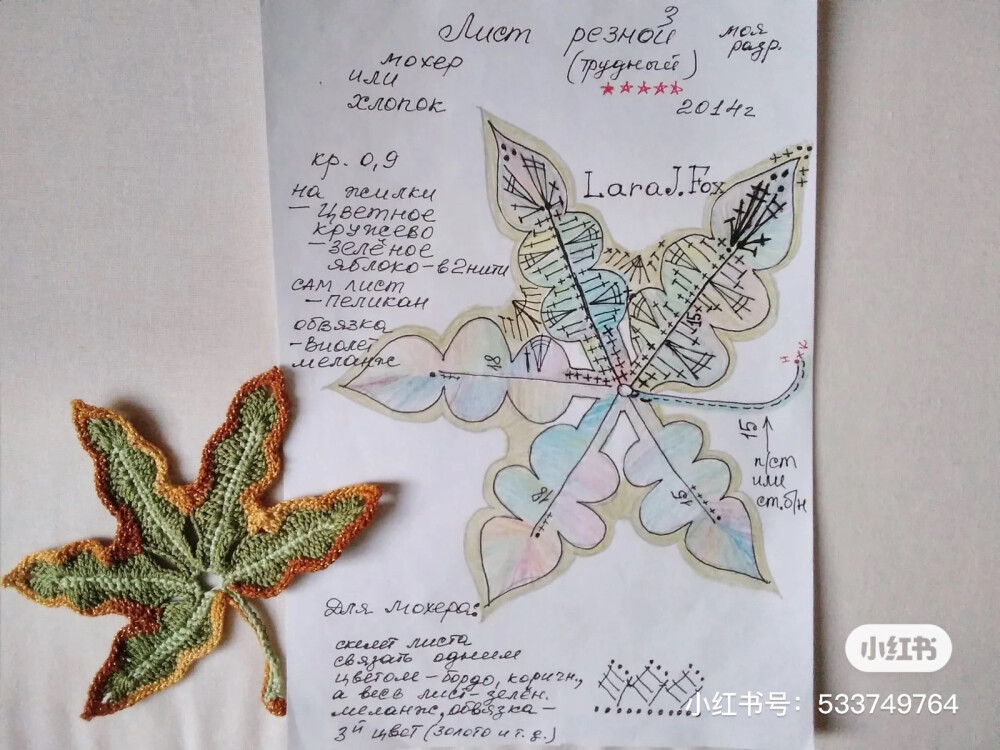 Лист резной 3
моя
разр.
(трудный)
мохер
или
хлопок
2014г
кр. 0,9
LaraJ.Fox
на жилки
– Цветное
кружево
– зелёное
яблоко – в 2 нити
сам лист
– Пеликан
обвязка
– Виолет
меланж
15
18
н
к
15
п/ст
или
ст.б/н
18
15
Для мохера:
скелет листа
связать одним
цветом – бордо, коричн.,
а весь лист – зелен.
меланж, обвязка –
3й цвет (золото и т.д.)
小红书
小红书号：533749764